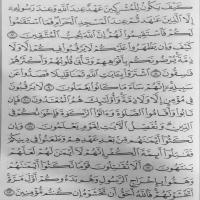 كَيْفَ يَكُونُ لِلْمُشْرِكِينَ عَهْدٌ عِندَ ٱللَّهِ وَعِندَ رَسُولِهِۦٓ
إِلَّا ٱلَّذِينَ عَٰهَدتُّمْ عِندَ ٱلْمَسْجِدِ ٱلْحَرَامِ فَمَا ٱسْتَقَٰمُوا۟
لَكُمْ فَٱسْتَقِيمُوا۟ لَهُمْ إِنَّ ٱللَّهَ يُحِبُّ ٱلْمُتَّقِينَ ٧
كَيْفَ وَإِن يَظْهَرُوا۟ عَلَيْكُمْ لَا يَرْقُبُوا۟ فِيكُمْ إِلًّا وَلَا
ذِمَّةً يُرْضُونَكُم بِأَفْوَٰهِهِمْ وَتَأْبَىٰ قُلُوبُهُمْ وَأَكْثَرُهُمْ
فَٰسِقُونَ ٨ ٱشْتَرَوْا۟ بِـَٔايَٰتِ ٱللَّهِ ثَمَنًا قَلِيلًا فَصَدُّوا۟ عَن
سَبِيلِهِۦٓ إِنَّهُمْ سَآءَ مَا كَانُوا۟ يَعْمَلُونَ ٩ لَا يَرْقُبُونَ
فِى مُؤْمِنٍ إِلًّا وَلَا ذِمَّةً وَأُو۟لَٰٓئِكَ هُمُ ٱلْمُعْتَدُونَ ١٠ فَإِن
تَابُوا۟ وَأَقَامُوا۟ ٱلصَّلَوٰةَ وَءَاتَوُا۟ ٱلزَّكَوٰةَ فَإِخْوَٰنُكُمْ فِى
ٱلدِّينِ وَنُفَصِّلُ ٱلْـَٔايَٰتِ لِقَوْمٍ يَعْلَمُونَ ١١ وَإِن
نَّكَثُوٓا۟ أَيْمَٰنَهُم مِّنۢ بَعْدِ عَهْدِهِمْ وَطَعَنُوا۟ فِى دِينِكُمْ
فَقَٰتِلُوٓا۟ أَئِمَّةَ ٱلْكُفْرِ إِنَّهُمْ لَآ أَيْمَٰنَ لَهُمْ لَعَلَّهُمْ
يَنتَهُونَ ١٢ أَلَا تُقَٰتِلُونَ قَوْمًا نَّكَثُوٓا۟ أَيْمَٰنَهُمْ
وَهَمُّوا۟ بِإِخْرَاجِ ٱلرَّسُولِ وَهُم بَدَءُوكُمْ أَوَّلَ مَرَّةٍ
أَتَخْشَوْنَهُمْ فَٱللَّهُ أَحَقُّ أَن تَخْشَوْهُ إِن كُنتُم مُّؤْمِنِينَ ١٣